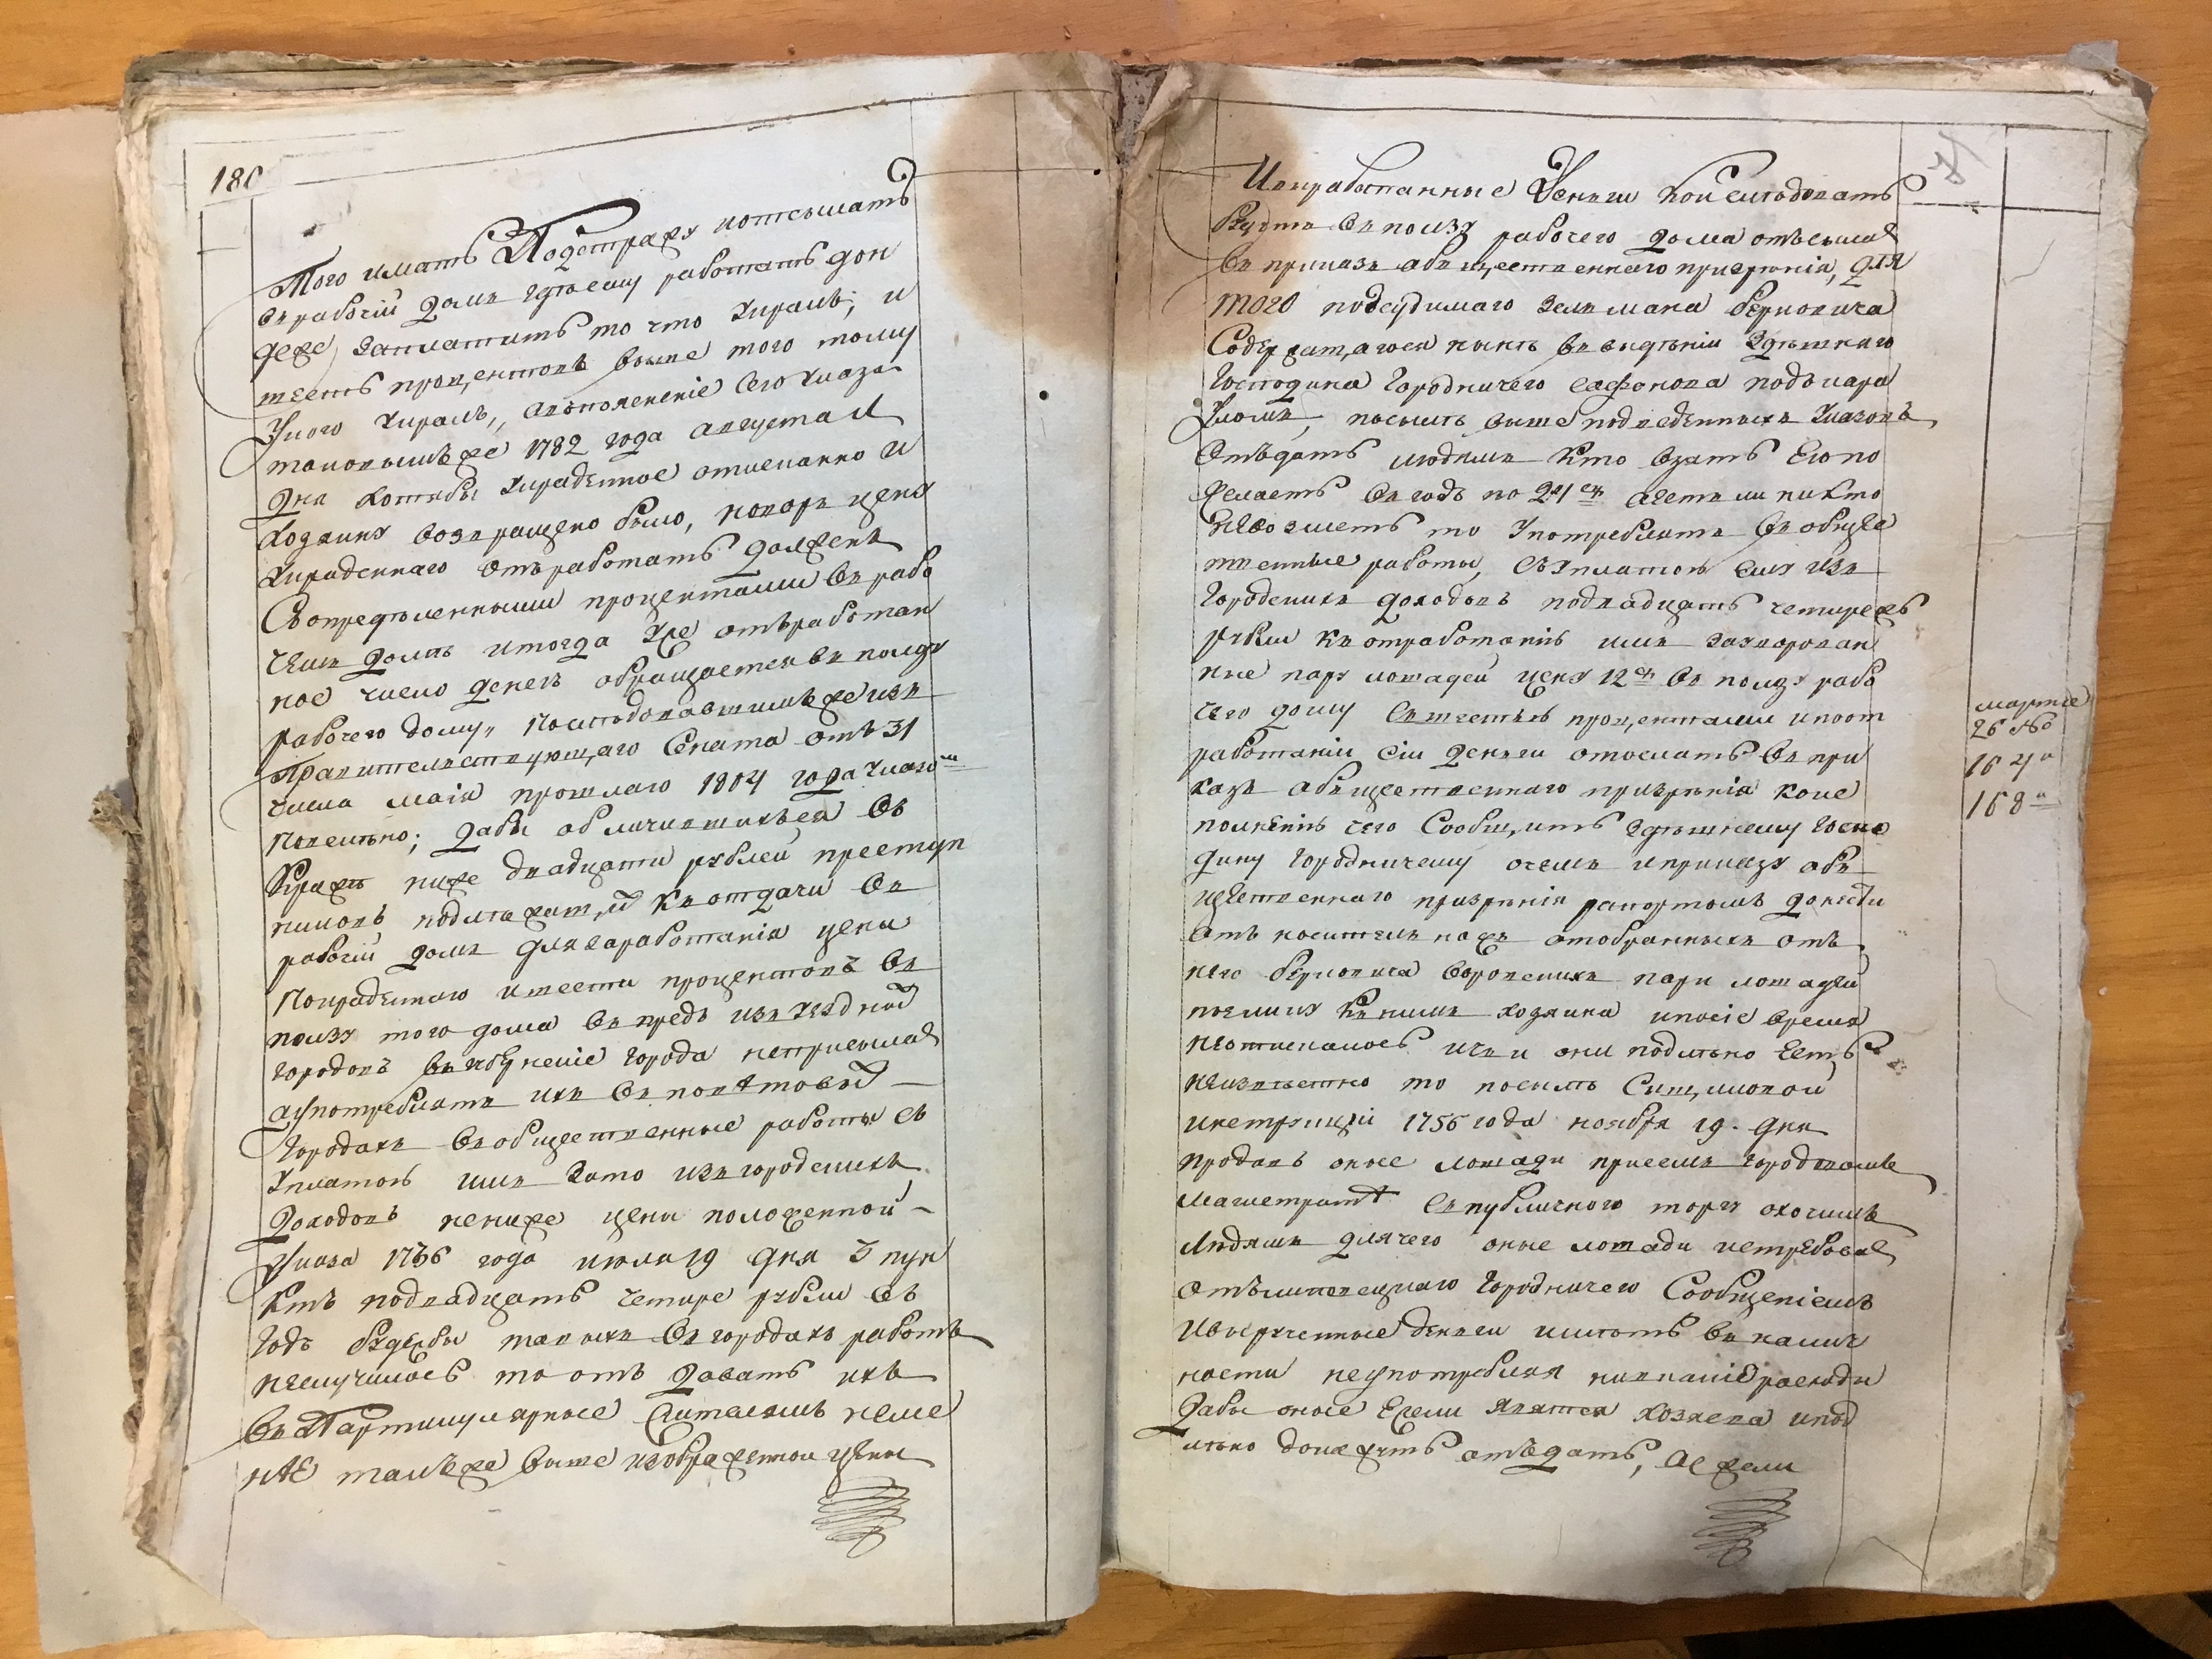 180
Того имать Подстражу иотсылать
въ рабочій домъ гдѣ ему работать дон
деже, заплатитъ то что укралъ, и
шесть процентовъ выше того тому
уного укралъ, вопополненіе Сего указа
таковымъ же 1782 года августа
дня хотябы украденное отыскано и
хозяину возвращено было, новоръ цену
украденнаго отъработать долженъ
Соопределенными процентами въ рабо
чемъ домѣ итогда уже отъработан
ное число денегъ обращается въ ползу
рабочего дому, Последовавшимъ же изъ
Правительствующаго Сената отъ 31
числа маія прошлаго 1804 года указомъ
Повелено; дабы обличившихся въ
Кражѣ ниже двадцати рублей преступ
никовъ подлежащій къ отдачи въ
рабочій домъ для заработанія цены
Покраденнаго ишести процентовъ въ
ползу того дома въ предь изъ уездной
городовъ въ губернскіе города неприсылая
аупотреблять ихъ въ
городахъ въ общественные работы съ
уплатою имъ зато изъ городскихъ
Доходовъ нениже цены положенной
указа 1766 года июля 19 дня 3 пун
ктѣ подвадцать четыре рубли въ
годъ буде бы такихъ въ городахъ работъ
неслучилось то отъ давать ихъ
въ Партикулярные Жителямъ неме
нѣе також выше изображенной цены
Изаработанные Деньги кои следовать
будутъ въ ползу рабочего дома отъсылая
въ приказъ общественнаго призренія, для
того подсудимаго Зелмана Берковича
Содержащагося нынѣ въ веденіи здѣшняго
Господина Городничего Сафонова подъ кара
уломъ, посилѣ вышеподведенныхъ указовъ
отъдать людямъ кто взять Его по
желаетъ въ годъ по 24 ср. аестьли никто
невозметъ то употреблять въ общес
твенные работы, съ уплатою ему изъ
городскихъ доходовъ подвадцать четырехъ
рубли къ отработанію имъ заворован
ные пару лошадей цену 12 ср. въ ползу рабо
чего дому съ шестью процентами ипоот
работаніи сіи деньги отослать въ при
казъ общественнаго призренія коис
полненію чего Сообщить здѣшнему Госпо
дину городничему очемъ иприказу общ
щественнаго призренія рапортомъ донести
Отъ отобранныхъ отъ
него Берковича воровскихъ пари лошадей
поелику къ нимъ хозяина ипосіе время
неотыскалось ичьи они подлинно есть
неизвестно то посилѣ Сыщиковой
инструкціи 1756 года ноября 19. дня
продавъ оные лошади присемъ городовомъ
магистратѣ съ публичного торгу охочимъ
Людямъ для чего оные лошади истребовав
отъ городничего Сообщеніемъ
Ивырученные деньги иметь въ налич
ности неупотребляя ни на какіе расходы
дабы оные если явятся хозяева ипод
линно докажутъ отъдать, а ежели
мартіе
26 №
164
168